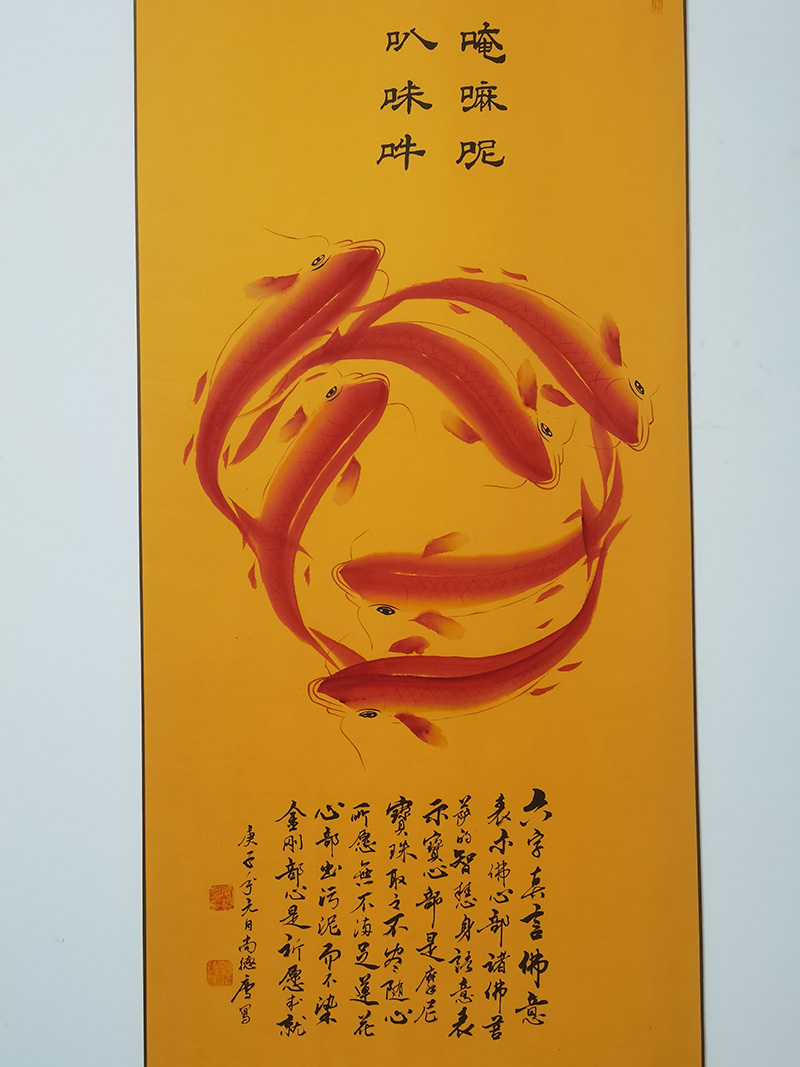 唵嘛呢
叭味吽
六字真言佛意
表示佛心部諸佛菩
萨的智慧身語意表
示寶心部是摩尼
寶珠取之不尽随心
所愿無不满足蓮花
心部出污泥而不染
金刚部心是祈愿成就
庚子年元月尚德